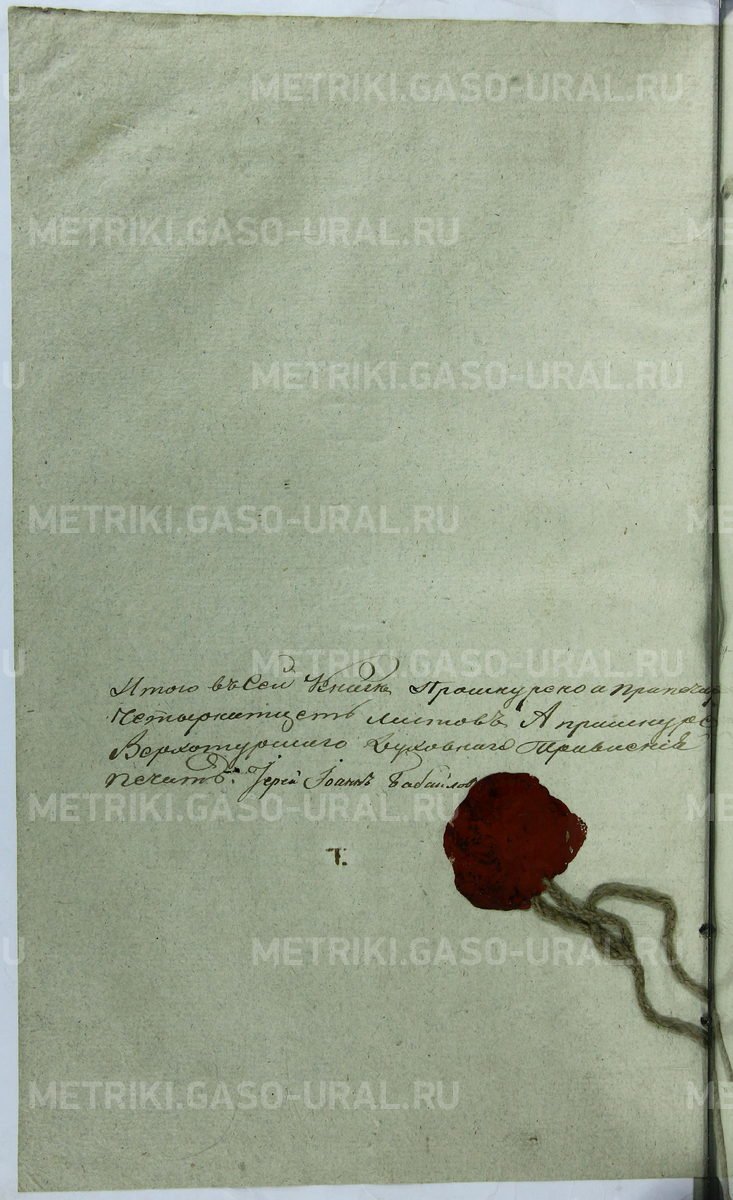 METRIKI.GASO-URAL.RU
METRIKI.GASO-URAL.RU
METRIKI.GASO-URAL.RU
METRIKI.GASO-URAL.RU
METRIKI.GASO-URAL.RU
Итого въ сей книге прошнурено а припеча
листовъ А пришнуре
Верхотурскаго Духовнаго Правления
печать: Іерей Іоаннъ Бабайлов
Т.
METRIKI.GASO-URAL.RU
METRIKI.GASO-URAL.RU
METRIKI.GASO-URAL.RU